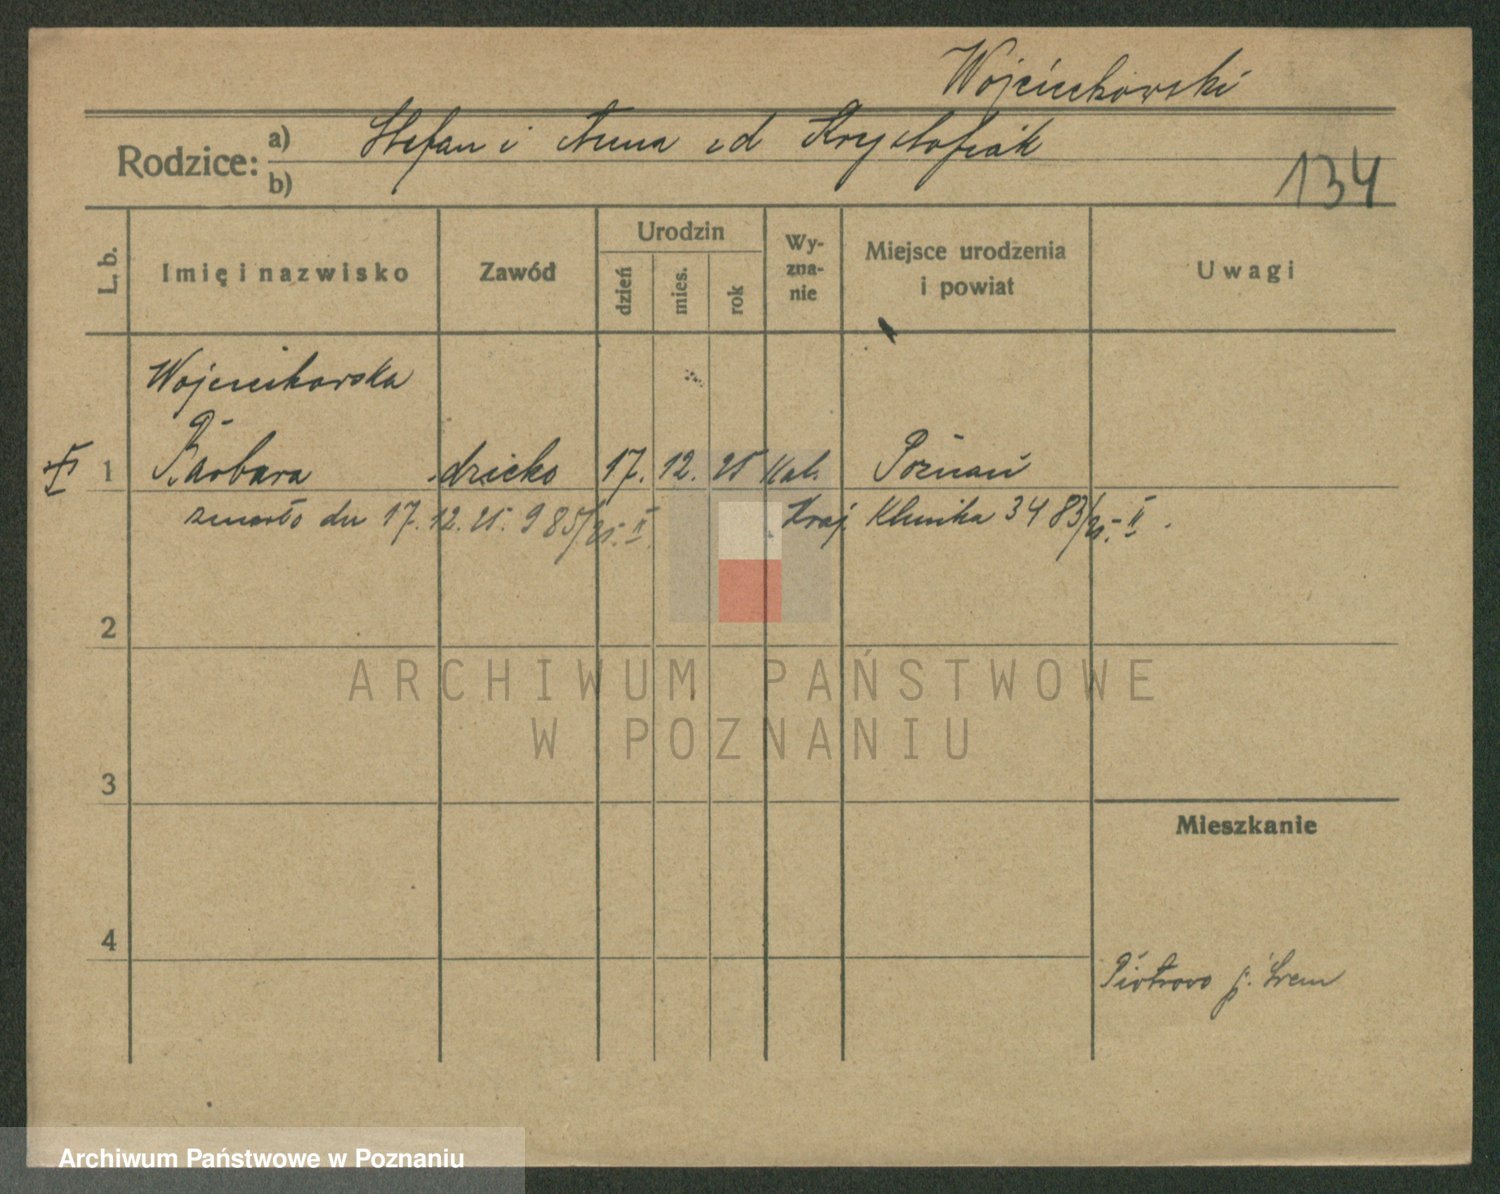 Wojciechowski
Rodzice: a) Stefan i Anna z d Krysztofiak
b)
134
L. b. Imię i nazwisko Zawód Urodzin dzień mies. rok Wy-zna-nie Miejsce urodzenia i powiat Uwagi
Wojciechowska
1 Barbara dziecko 17. 12. 25 kat. Poznań
zmarło dn 17. 12. 25. 985/25. II. Kraj. Klinika 3483/25. II.
2
3
Mieszkanie
4
Piotrowo p. Śrem
ARCHIWUM PAŃSTWOWE
W POZNANIU
Archiwum Państwowe w Poznaniu